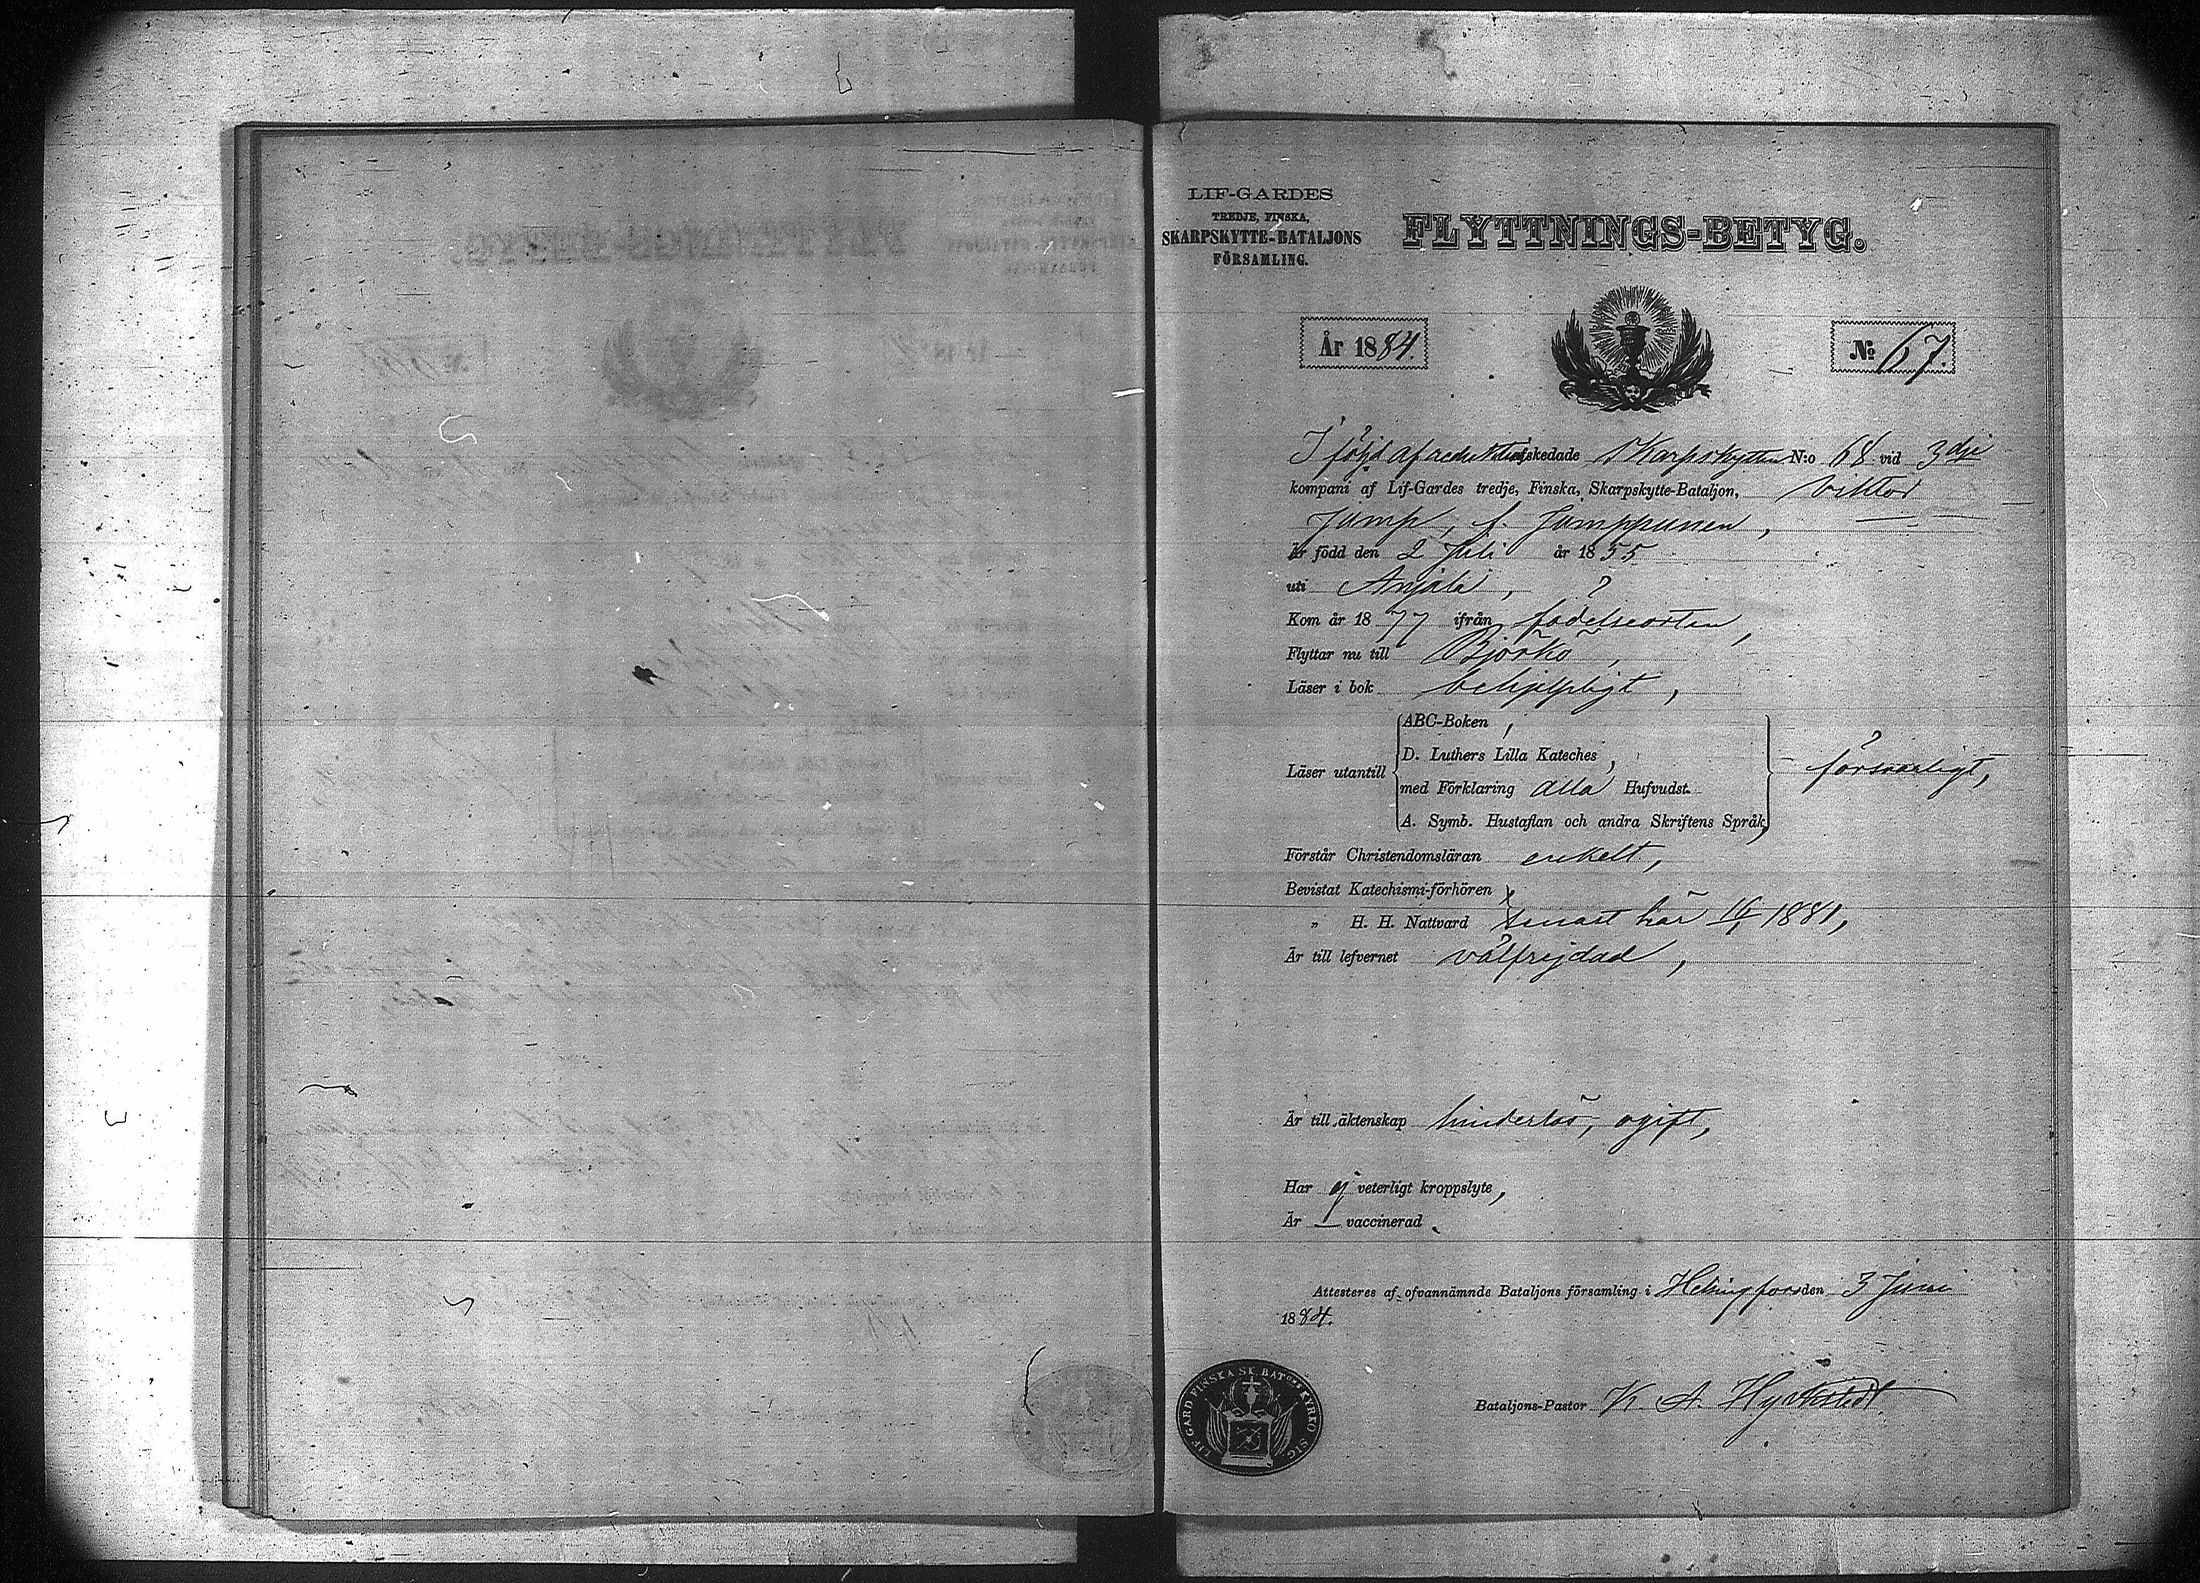 LIF-GARDES
TREDJE, FINSKA,
SKARPSKYTTE-BATALJONS
FÖRSAMLING.
FLYTTNINGS-BETYG.
År 1884.
No 67.
I följd af reduktion afskedade Skarpskytten N:o 68 vid 3dje
kompani af Lif-Gardes tredje, Finska, Skarpskytte-Bataljon, Viktor
Jump, f. Jumppunen,
Är född den 2 Juli år 1855
uti Anjala, ?
Kom år 1877 ifrån födelseorten,
Flyttar nu till Björkö,
Läser i bok behjelpligt,
Läser utantill
ABC-Boken,
D. Luthers Lilla Kateches,
med Förklaring alla Hufvudst.
A. Symb. Hustaflan och andra Skriftens Språk,
försvarligt,
Förstår Christendomsläran enkelt,
Bevistat Katechismi-förhören
„ H. H. Nattvard senast här 1881,
Är till lefvernet välfrejdad,
Är till äktenskap hinderlös, ogift,
Har ej veterligt kroppslyte,
Är — vaccinerad.
Attesteres af ofvannämnde Bataljons församling i Helsingfors den 3 Juni
1884.
Bataljons-Pastor K. A. Hyrkstedt.
LIF-GARD FINSKA SK. BAT:s KYRKO SIG.